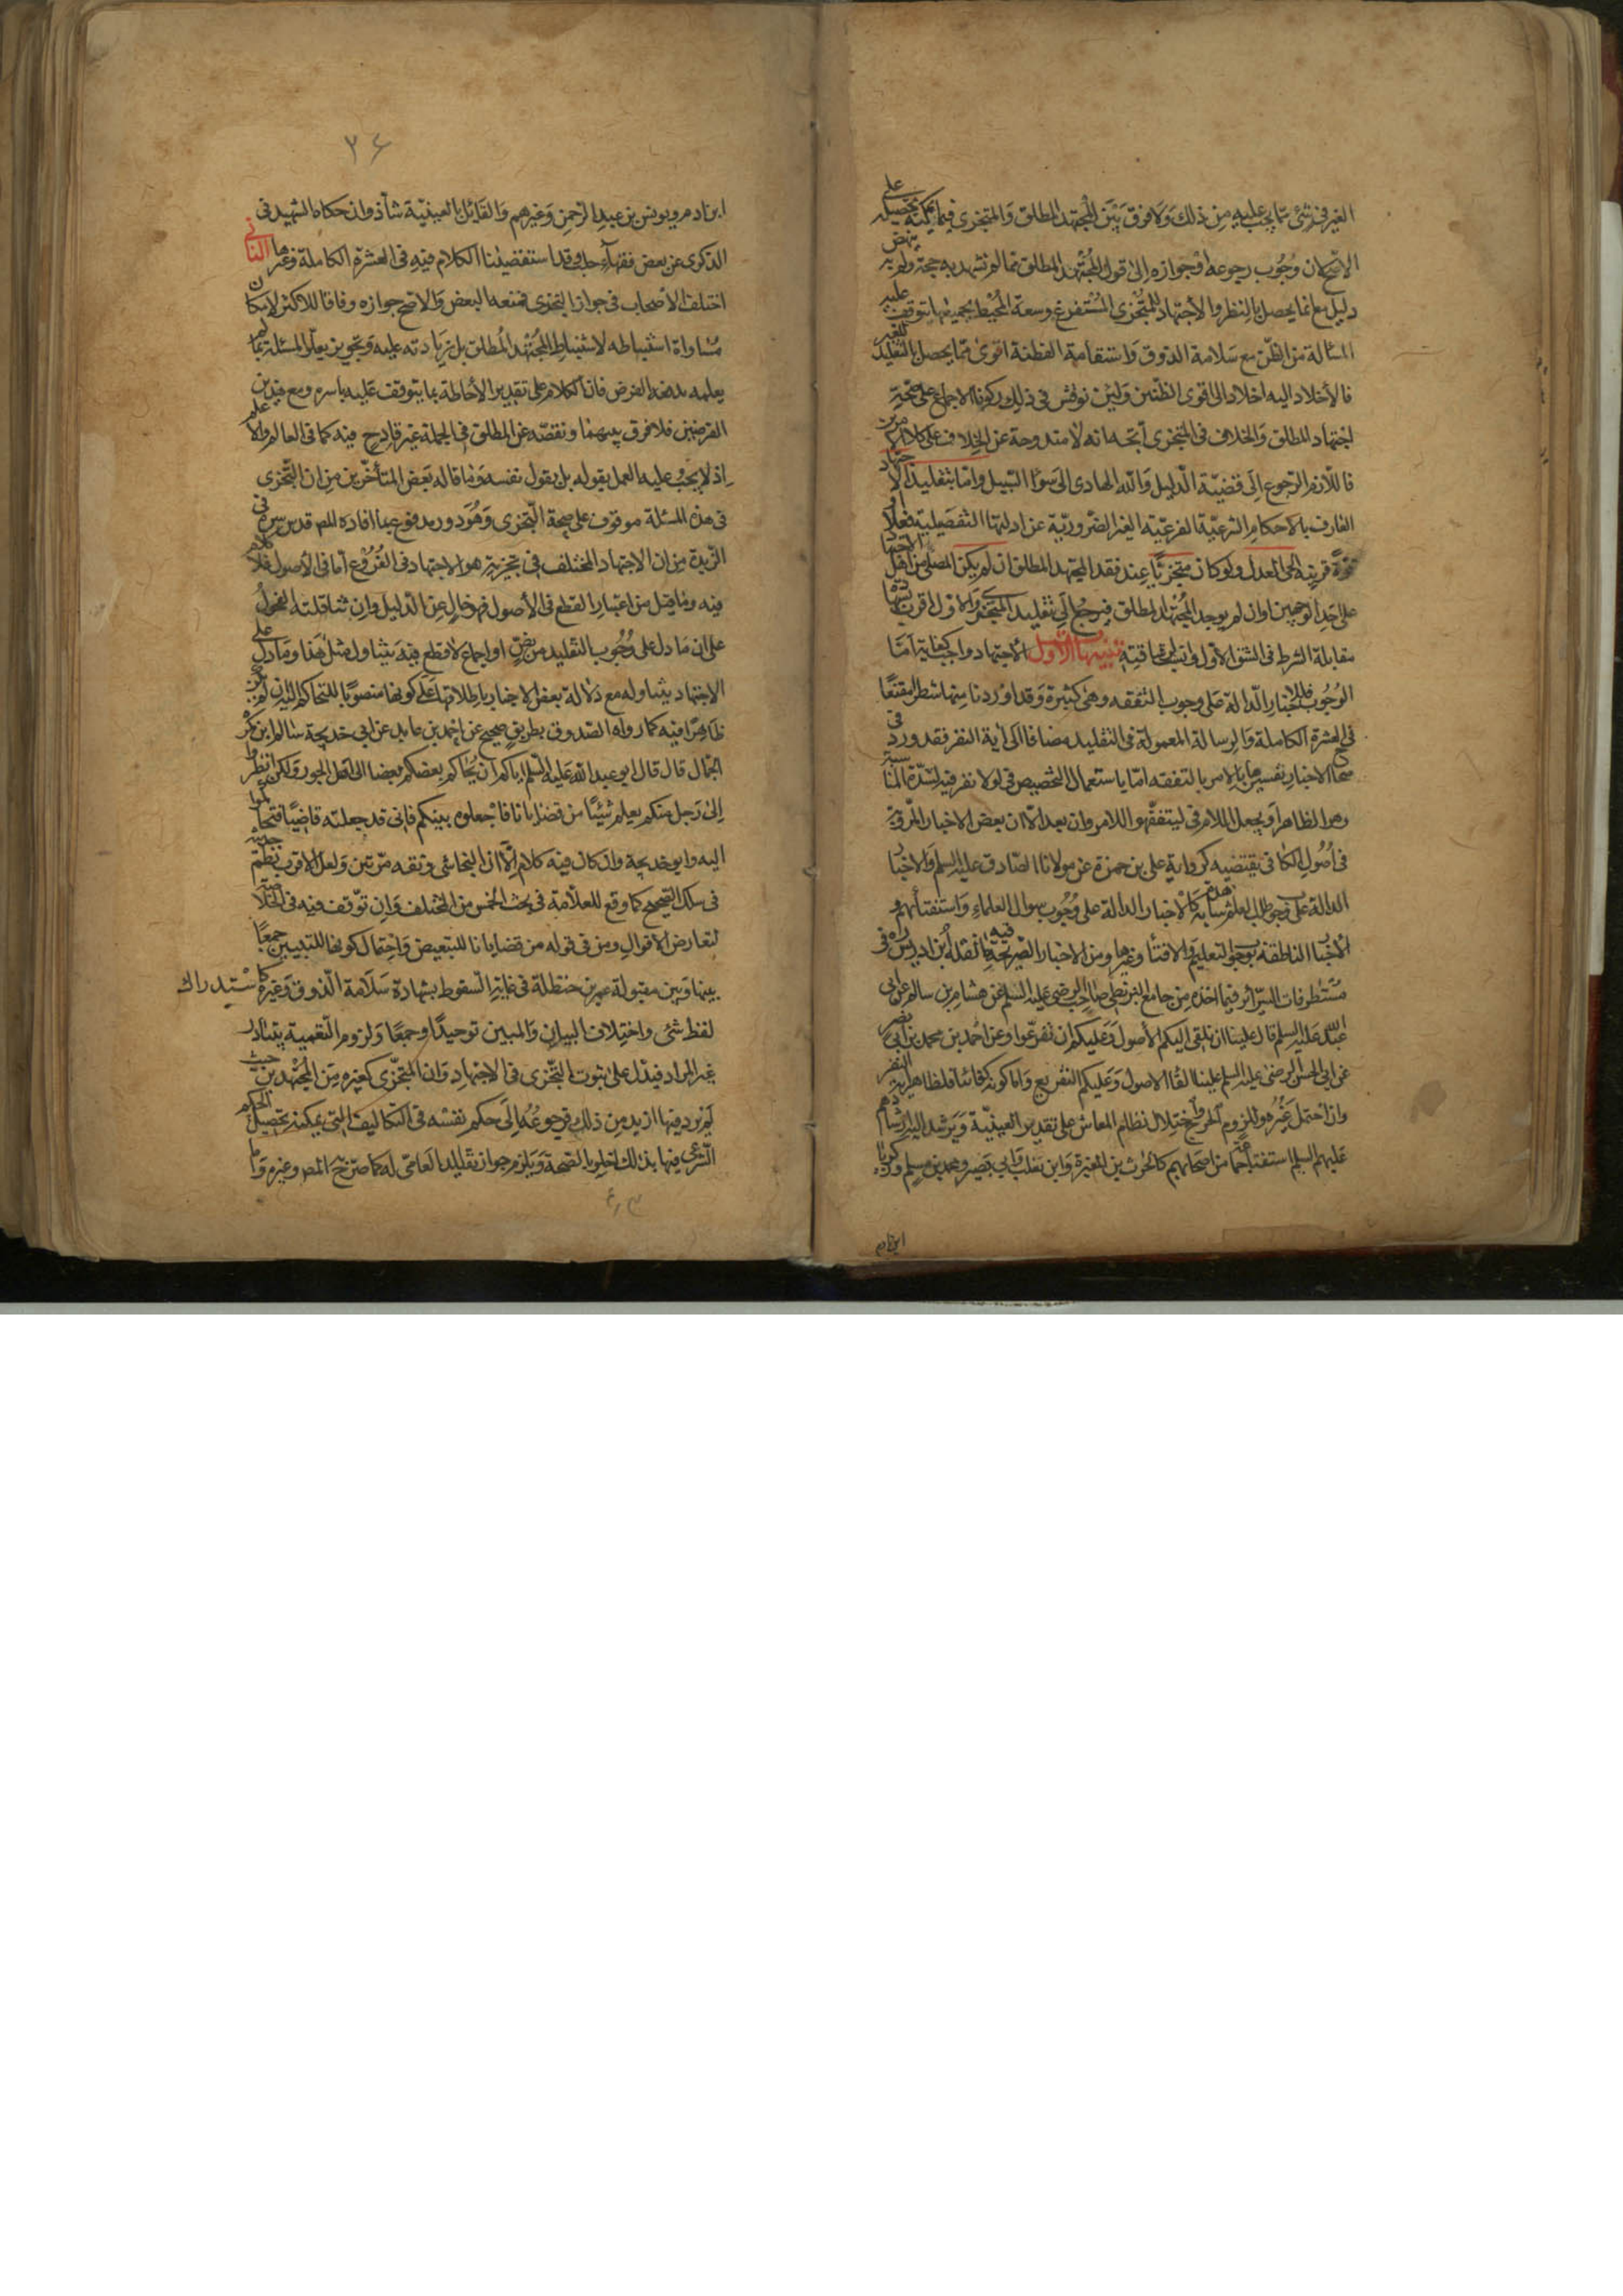 الغير في شئ مما يجب عليه من ذلك ولا فرق بين المجتهد المطلق والمتجزي فيما يمكنه تحصيله على
الاصح كان وجوب رجوعه او جوازه الى قول المجتهد المطلق مما لم تشهد به حجة ولم ينهض به
دليل مع انما يحصل بالنظر والاجتهاد للمتجزي المستفرغ وسعه المحيط بجميع ما يتوقف عليه
المسألة من الظن مع سلامة الذوق واستقامة الفطنة اقوى مما يحصل بالتقليد للغير
فالاخلاد اليه اخلاد الى اقوى الظنين ولئن نوقش في ذلك ركونا الاجماع على صحة
اجتهاد المطلق والخلاف في المتجزي اتجه انه لا مندوحة عن الخلاف على كلا الامرين
فاللازم الرجوع الى قضية الدليل والله الهادي الى سواء السبيل واما بتقليد الاجتهاد
العارف بالاحكام الشرعية الفرعية الغير الضرورية عن ادلتها التفصيلية فعلا او
قوة قريبة الحي العدل ولو كان متجزيا عند فقد المجتهد المطلق ان لم يكن المصلي من اهل الاجتهاد
على احد الوجهين وان لم يوجد المجتهد المطلق فيرجع الى تقليد المتجزي والاول اقرب
مقابلة الشرط في الشق الاول تنبيهات الاول الاجتهاد واجب كفاية اما
الوجوب فللاخبار الدالة على وجوب التفقه وهي كثيرة وقد اوردنا منها شطرا مقنعا
في العشرة الكاملة والرسالة المعمولة في التقليد مضافا الى آية النفر فقد ورد في
صحاح الاخبار تفسيرها بالامر بالتفقه اما باستعمال التخصيص في لولا نفر فيه لشدة المناسبة
وهو الظاهر او بجعل اللام في ليتفقهوا اللام وان بعد الا ان بعض الاخبار المروية
في اصول الكافي يقتضيه كرواية علي بن حمزة عن مولانا الصادق عليه السلم والاخبار
الدالة على وجوب طلب العلم شاهدة به كالاخبار الدالة على وجوب سوال العلماء واستفتائهم و
الاخبار الناطقة بوجوب التعليم والافتاء وغيرها ومن الاخبار الصريحة فيه ما نقله ابن ادريس ره في
مستطرفات السرائر فيما اخذه من جامع البزنطي صاحب الرضي عليه السلم عن هشام بن سالم عن ابي
عبد الله عليه السلم قال علينا ان نلقي اليكم الاصول وعليكم ان تفرعوا وعن احمد بن محمد بن ابي نصر
عن ابي الحسن الرضي عليه السلم علينا القاء الاصول وعليكم التفريع واما كونه كفائيا فلظاهر آية النفر
وان احتمل غيره ولزوم الحرج واختلال نظام المعاش على تقدير العينية ويرشد اليه ارشادهم
عليهم السلم استفتاء جماعة من اصحابهم كالحرث بن المغيرة وابن تغلب وابي بصير ومحمد بن مسلم وزكريا بن
ابن ادم
٣۶
ابن ادم ويونس بن عبد الرحمن وغيرهم والقائل بالعينية شاذ وان حكاه الشهيد في
الذكرى عن بعض فقهاء حلب وقد استقصينا الكلام فيه في العشرة الكاملة وغيرها الثاني
اختلف الاصحاب في جواز التجزي فمنعه البعض والاصح جوازه وفاقا للاكثر لامكان
مساواة استنباطه لاستنباط المجتهد المطلق بل زيادته عليه وتجويز تعلق المسئلة بما لم
يعلمه يدفعه الفرض فان الكلام على تقدير الاحاطة بما يتوقف عليه باسره ومع
الفرضين فلا فرق بينهما ونقصه عن المطلق في الجملة غير قادح فيه كما في العالم والاعلم
اذ لا يجب عليه العمل بقوله بل بقول نفسه وما قاله بعض المتأخرين من ان التجزي
في هذه المسئلة موقوف على صحة التجزي وهو دور مدفوع بما افاده المص قدس سره في
الزبدة من ان الاجتهاد المختلف في تجزيه هو الاجتهاد في الفروع اما في الاصول فلا كلام
فيه وما قيل من اعتبار القطع في الاصول فهو خال عن الدليل وان تناقلته الفحول
على ان ما دل على وجوب التقليد من نص او اجماع لا قطع فيه يتناول مثل هذا وما دل على
الاجتهاد يتناوله مع دلالة بعض الاخبار باطلاقها على كونه منصوبا للتحاكم اليه ان لم
ظاهرا فيه كما رواه الصدوق بطريق صحيح عن احمد بن عايذ عن ابي خديجة سالم بن مكرم
الجمال قال قال ابو عبد الله عليه السلم اياكم ان يحاكم بعضكم بعضا الى اهل الجور ولكن انظروا
الى رجل منكم يعلم شيئا من قضايانا فاجعلوه بينكم فاني قد جعلته قاضيا فتحاكموا
اليه وابو خديجة وان كان فيه كلام الا ان النجاشي وثقه مرتين ولعل الاقرب نظم حديثه
في سلك الصحيح كما وقع للعلامة في بحث الخمس من المختلف وان توقف فيه في الخلاصة
لتعارض الاقوال ومن في قوله من قضايانا للتبعيض واحتمال كونها للتبيين جمعا
بينها وبين مقبولة عمر بن حنظلة في غاية السقوط بشهادة سلامة الذوق وغيره كاستدراك
لفظ شئ واختلاف البيان والمبين توحيدا وجمعا ولزوم التعمية بتبادر
غير المراد فيدل على ثبوت التجزي في الاجتهاد وان المتجزي كغيره من المجتهدين حيث
لم يرد فيها ازيد من ذلك فرجوعه الى حكم نفسه في التكاليف التي يمكنه تحصيل الحكم
الشرعي فيها بذلك اولى بالصحة ويلزم جواز تقليد العامي له كما صرح به المص وغيره واما